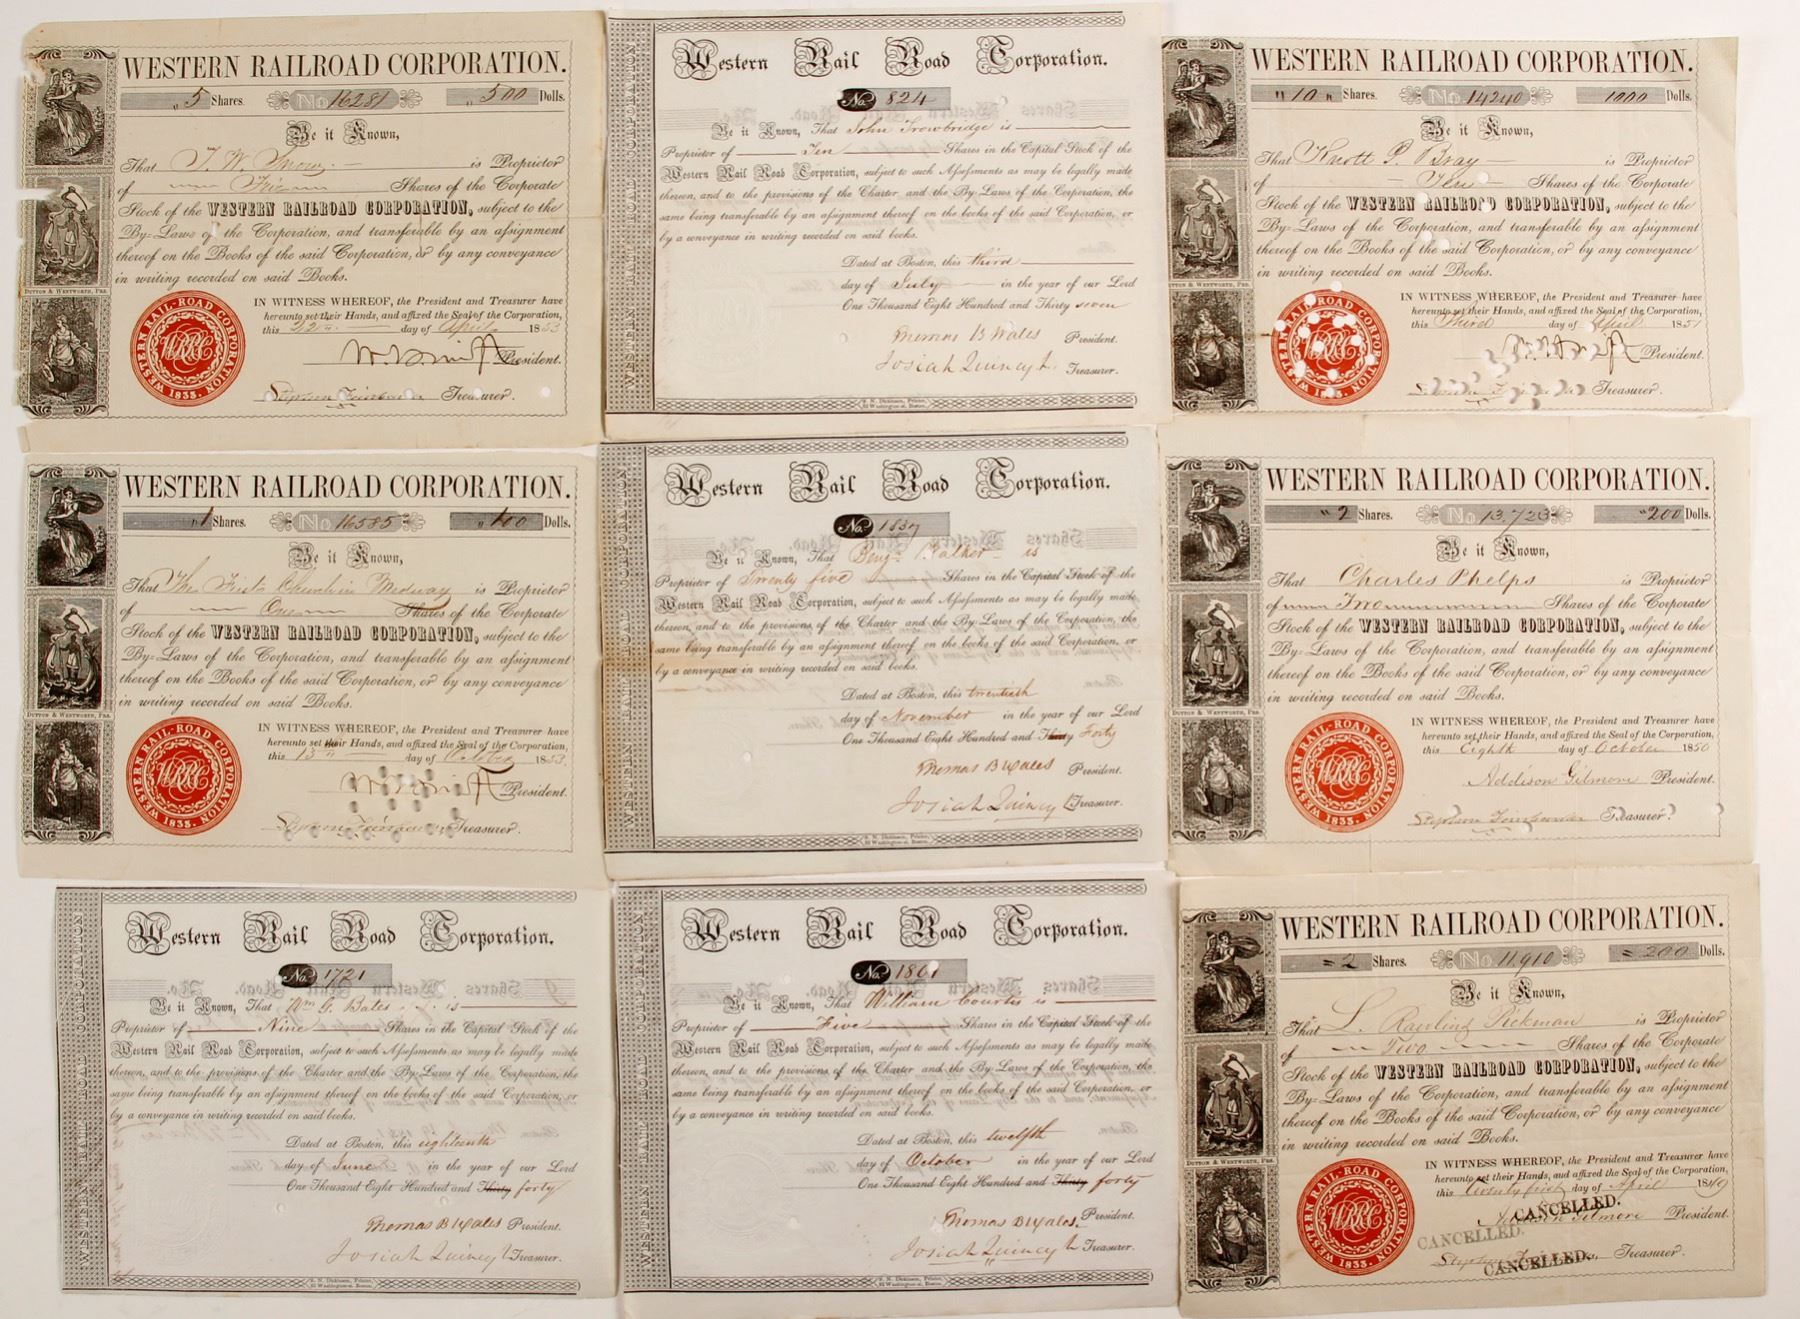 WESTERN RAILROAD CORPORATION.
5 Shares. No 16281 500 Dolls.
Be it Known,
That T. W. is Proprietor
of Five Shares of the Corporate
Stock of the WESTERN RAILROAD CORPORATION, subject to the
By-Laws of the Corporation, and transferable by an assignment
thereof on the Books of the said Corporation, or by any conveyance
in writing recorded on said Books.
DUTTON & WENTWORTH, PRS.
IN WITNESS WHEREOF, the President and Treasurer have
hereunto set their Hands, and affixed the Seal of the Corporation,
this 22 day of April 1853
President.
Treasurer.
WESTERN RAIL-ROAD CORPORATION
WRRC
1833.
Western Rail Road Corporation.
WESTERN RAIL-ROAD CORPORATION
No. 824
Be it Known, That John Trowbridge is
Proprietor of Ten Shares in the Capital Stock of the
Western Rail Road Corporation, subject to such Assessments as may be legally made
thereon, and to the provisions of the Charter and the By-Laws of the Corporation, the
same being transferable by an assignment thereof on the books of the said Corporation, or
by a conveyance in writing recorded on said books.
Dated at Boston, this third
day of July in the year of our Lord
One Thousand Eight Hundred and Thirty seven
Thomas B Wales President.
Josiah Quincy Jr. Treasurer.
S. N. Dickinson, Printer,
52 Washington st. Boston.
WESTERN RAILROAD CORPORATION.
10 Shares. No 14240 1000 Dolls.
Be it Known,
That Knott P. Bray is Proprietor
of Ten Shares of the Corporate
Stock of the WESTERN RAILROAD CORPORATION, subject to the
By-Laws of the Corporation, and transferable by an assignment
thereof on the Books of the said Corporation, or by any conveyance
in writing recorded on said Books.
DUTTON & WENTWORTH, PRS.
IN WITNESS WHEREOF, the President and Treasurer have
hereunto set their Hands, and affixed the Seal of the Corporation,
this Third day of April 1851
President.
Treasurer.
WESTERN RAIL-ROAD CORPORATION
WRRC
1833.
WESTERN RAILROAD CORPORATION.
1 Shares. No 16585 100 Dolls.
Be it Known,
That The First Church in Medway is Proprietor
of One Shares of the Corporate
Stock of the WESTERN RAILROAD CORPORATION, subject to the
By-Laws of the Corporation, and transferable by an assignment
thereof on the Books of the said Corporation, or by any conveyance
in writing recorded on said Books.
DUTTON & WENTWORTH, PRS.
IN WITNESS WHEREOF, the President and Treasurer have
hereunto set their Hands, and affixed the Seal of the Corporation,
this 13 day of October 1853
President.
Treasurer.
WESTERN RAIL-ROAD CORPORATION
WRRC
1833.
Western Rail Road Corporation.
WESTERN RAIL-ROAD CORPORATION
No. 1837
Be it Known, That Benj. is
Proprietor of Twenty five Shares in the Capital Stock of the
Western Rail Road Corporation, subject to such Assessments as may be legally made
thereon, and to the provisions of the Charter and the By-Laws of the Corporation, the
same being transferable by an assignment thereof on the books of the said Corporation, or
by a conveyance in writing recorded on said books.
Dated at Boston, this twentieth
day of November in the year of our Lord
One Thousand Eight Hundred and Thirty Forty
Thomas B Wales President.
Josiah Quincy Jr Treasurer.
S. N. Dickinson, Printer,
52 Washington st. Boston.
WESTERN RAILROAD CORPORATION.
2 Shares. No 13.723 200 Dolls.
Be it Known,
That Charles Phelps is Proprietor
of Two Shares of the Corporate
Stock of the WESTERN RAILROAD CORPORATION, subject to the
By-Laws of the Corporation, and transferable by an assignment
thereof on the Books of the said Corporation, or by any conveyance
in writing recorded on said Books.
DUTTON & WENTWORTH, PRS.
IN WITNESS WHEREOF, the President and Treasurer have
hereunto set their Hands, and affixed the Seal of the Corporation,
this Eighth day of October 1850
Addison Gilmore President.
Treasurer.
WESTERN RAIL-ROAD CORPORATION
WRRC
1833.
Western Rail Road Corporation.
WESTERN RAIL-ROAD CORPORATION
No. 1721
Be it Known, That Wm G. Bates is
Proprietor of Nine Shares in the Capital Stock of the
Western Rail Road Corporation, subject to such Assessments as may be legally made
thereon, and to the provisions of the Charter and the By-Laws of the Corporation, the
same being transferable by an assignment thereof on the books of the said Corporation, or
by a conveyance in writing recorded on said books.
Dated at Boston, this eighteenth
day of June in the year of our Lord
One Thousand Eight Hundred and Thirty forty
Thomas B Wales President.
Josiah Quincy Jr Treasurer.
S. N. Dickinson, Printer,
52 Washington st. Boston.
Western Rail Road Corporation.
WESTERN RAIL-ROAD CORPORATION
No. 1801
Be it Known, That William Courtis is
Proprietor of Five Shares in the Capital Stock of the
Western Rail Road Corporation, subject to such Assessments as may be legally made
thereon, and to the provisions of the Charter and the By-Laws of the Corporation, the
same being transferable by an assignment thereof on the books of the said Corporation, or
by a conveyance in writing recorded on said books.
Dated at Boston, this twelfth
day of October in the year of our Lord
One Thousand Eight Hundred and Thirty forty
Thomas B Wales. President.
Josiah Quincy Jr Treasurer.
S. N. Dickinson, Printer,
52 Washington st. Boston.
WESTERN RAILROAD CORPORATION.
2 Shares. No 11.910 200 Dolls.
Be it Known,
That L. Rawlins Pickman is Proprietor
of Two Shares of the Corporate
Stock of the WESTERN RAILROAD CORPORATION, subject to the
By-Laws of the Corporation, and transferable by an assignment
thereof on the Books of the said Corporation, or by any conveyance
in writing recorded on said Books.
DUTTON & WENTWORTH, PRS.
IN WITNESS WHEREOF, the President and Treasurer have
hereunto set their Hands, and affixed the Seal of the Corporation,
this Twenty first day of April 1849
Addison Gilmore President.
CANCELLED.
CANCELLED.
Treasurer.
CANCELLED.
WESTERN RAIL-ROAD CORPORATION
WRRC
1833.